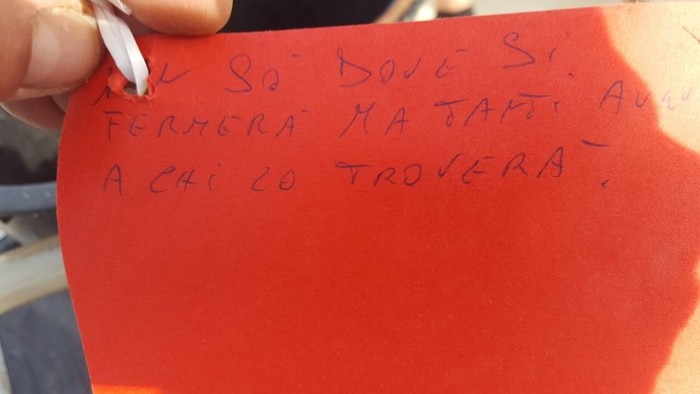 NON SÒ DOVE SI
FERMERÀ MA TANTI AUGURI
A CHI LO TROVERÀ.